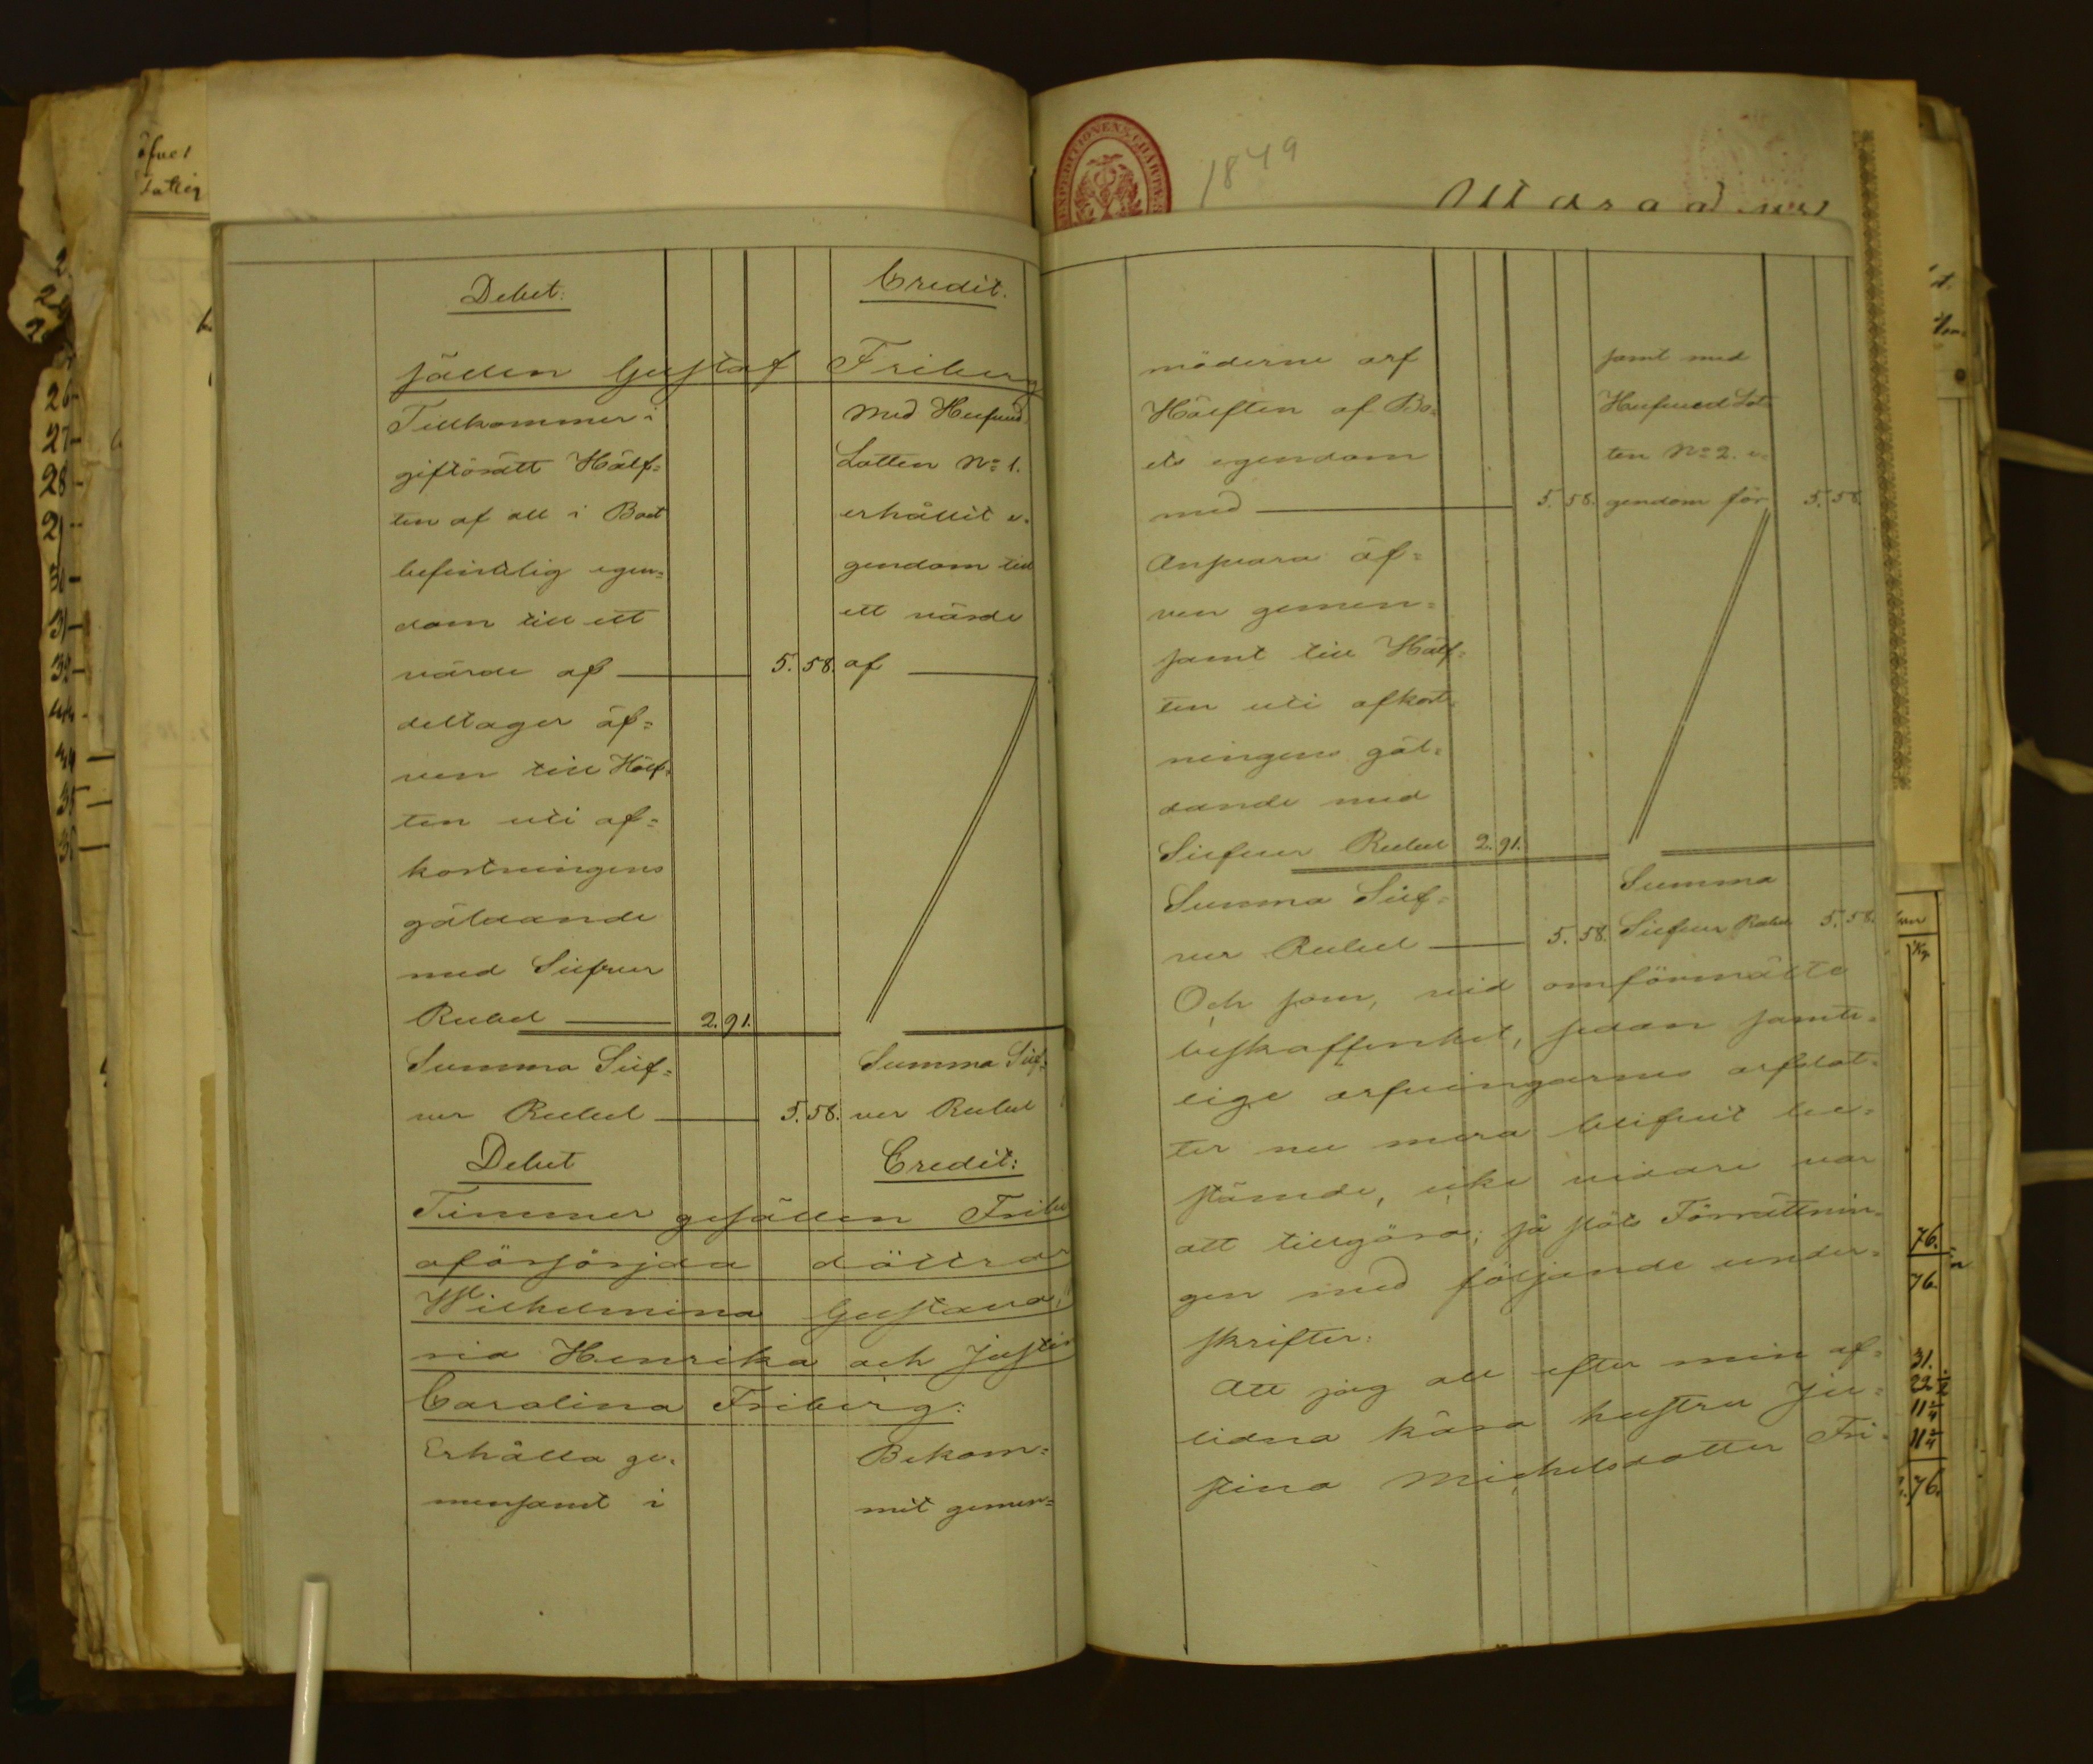 Debet:
Credit.
sällen Gustaf Friberg
Tillkommer i
giftorätt Hälf=
ten af all i Boet
befintelig egen=
dom till ett
värde af 5. 58.
deltager äf=
ven till Hälf=
ten uti af=
kortningens
gäldande
med Silfver
Rubel 2. 91.
Summa Silf=
ver Rubel 5. 58.
Med Hufvud
Lotten No 1.
erhållit e=
gendom till
ett värde
af
Summa Silf=
ver Rubel
Debet
Credit:
Timmer gesällen Fribe
oförsörjda döttrar
Wilhelmina Gustava,
ria Henrika och Justin
Carolina Friberg:
Erhålla ge=
mensamt i
Bekom=
mit gemen=
1849
möderne arf
Hälften af Bo=
ets egendom
med 5. 58.
Ansvara äf=
ven gemen=
samt till Hälf=
ten uti afkort=
ningens gäl=
dande med
Silfver Rubel 2. 91.
Summa Silf=
ver Rubel 5. 58.
samt med
Hufvud Lot=
ten No 2. e=
gendom för 5. 58
Summa
Silfver Rubel 5. 58.
Och som, vid omförmälte
beskaffenhet, sedan samte=
lige arfvingarnes arfslot=
ter nu mera blifvit be=
stämde, icke vidare var
att tillgöra; så slöts Förrättnin=
gen med följande under=
skrifter:
Att jag allt efter min af=
lidna kära hustru Ju=
stina Michelsdotter Fri=
öfver
26
27
28
76.
76.
31.
76.